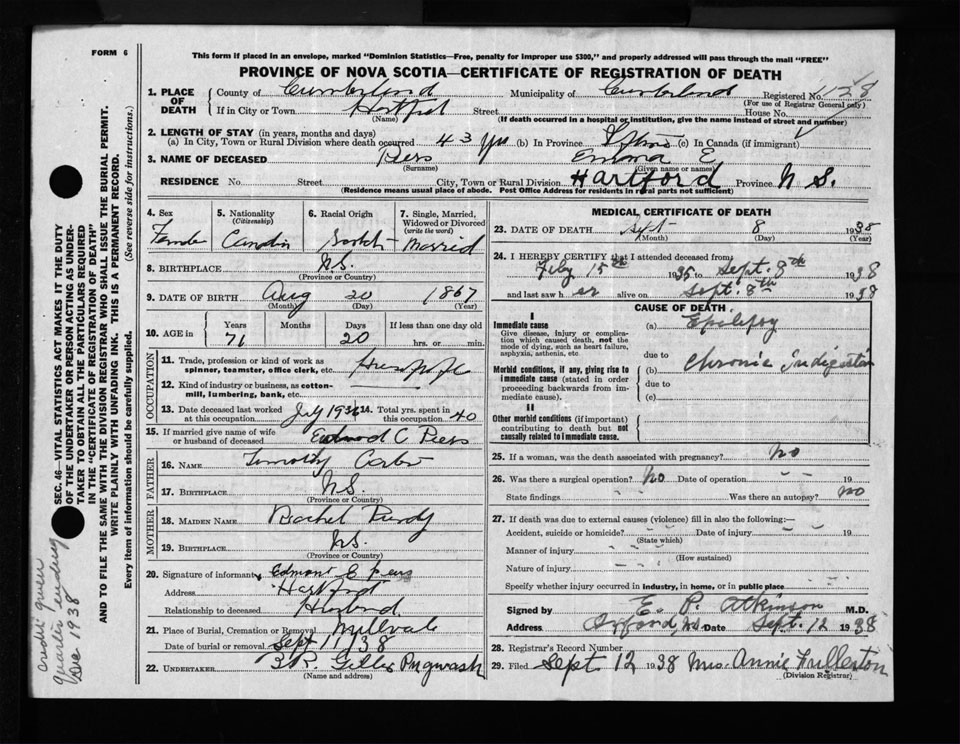 FORM 6
This form if placed in an envelope, marked "Dominion Statistics—Free, penalty for improper use $300," and properly addressed will pass through the mail "FREE"
PROVINCE OF NOVA SCOTIA—CERTIFICATE OF REGISTRATION OF DEATH
1. PLACE OF DEATH
County of Cumberland Municipality of Cumberland Registered No. 1128
(For use of Registrar General only)
If in City or Town Hartford Street House No.
(Name) (If death occurred in a hospital or institution, give the name instead of street and number)
2. LENGTH OF STAY (in years, months and days)
(a) In City, Town or Rural Division where death occurred 43 yrs (b) In Province (c) In Canada (if immigrant)
3. NAME OF DECEASED Peers Emma E
(Surname) (Given name or names)
RESIDENCE No. Street City, Town or Rural Division Hartford Province N S.
(Residence means usual place of abode. Post Office Address for residents in rural parts not sufficient)
4. Sex 5. Nationality (Citizenship) 6. Racial Origin 7. Single, Married, Widowed or Divorced (write the word)
Female Canadian Scotch Married
8. BIRTHPLACE N.S.
(Province or Country)
9. DATE OF BIRTH Aug 20 1867
(Month) (Day) (Year)
10. AGE in Years Months Days If less than one day old
71 20 hrs. or min.
OCCUPATION
11. Trade, profession or kind of work as spinner, teamster, office clerk, etc.
12. Kind of industry or business, as cotton-mill, lumbering, bank, etc.
13. Date deceased last worked at this occupation July 193 14. Total yrs. spent in this occupation 40
15. If married give name of wife or husband of deceased Edmond C Peers
FATHER
16. NAME Timothy
17. BIRTHPLACE N.S.
(Province or Country)
MOTHER
18. MAIDEN NAME Rachel Purdy
19. BIRTHPLACE N.S.
(Province or Country)
20. Signature of informant Edmont E peers
Address Hartford
Relationship to deceased Husband
21. Place of Burial, Cremation or Removal Millvale
Date of burial or removal Sept 1938
22. UNDERTAKER Pugwash
(Name and address)
MEDICAL CERTIFICATE OF DEATH
23. DATE OF DEATH Sept 8 1938
(Month) (Day) (Year)
24. I HEREBY CERTIFY that I attended deceased from:
Feby 15th 1935 to Sept. 8th 1938
and last saw her alive on Sept. 8th 1938
CAUSE OF DEATH
I
Immediate cause
Give disease, injury or complication which caused death, not the mode of dying, such as heart failure, asphyxia, asthenia, etc.
(a) Epilepsy
due to
Morbid conditions, if any, giving rise to immediate cause (stated in order proceeding backwards from immediate cause).
(b) Chronic Indigestion
due to
(c)
II
Other morbid conditions (if important) contributing to death but not causally related to immediate cause.
25. If a woman, was the death associated with pregnancy? no
26. Was there a surgical operation? No Date of operation 19
State findings Was there an autopsy? No
27. If death was due to external causes (violence) fill in also the following:—
Accident, suicide or homicide? Date of injury 19
(State which)
Manner of injury
(How sustained)
Nature of injury
Specify whether injury occurred in industry, in home, or in public place
Signed by E. P. Atkinson M.D.
Address Oxford, N.S. Date Sept. 12 1938
28. Registration Record Number
29. Filed Sept 12 1938 Mrs. Annie Fullerton
(Division Registrar)
SEC. 46—VITAL STATISTICS ACT MAKES IT THE DUTY OF THE UNDERTAKER OR PERSON ACTING AS UNDERTAKER TO OBTAIN ALL THE PARTICULARS REQUIRED IN THE "CERTIFICATE OF REGISTRATION OF DEATH"
AND TO FILE THE SAME WITH THE DIVISION REGISTRAR WHO SHALL ISSUE THE BURIAL PERMIT.
WRITE PLAINLY WITH UNFADING INK. THIS IS A PERMANENT RECORD.
Every item of information should be carefully supplied. (See reverse side for instructions.)
credit given
quarter ending
Dec 1938